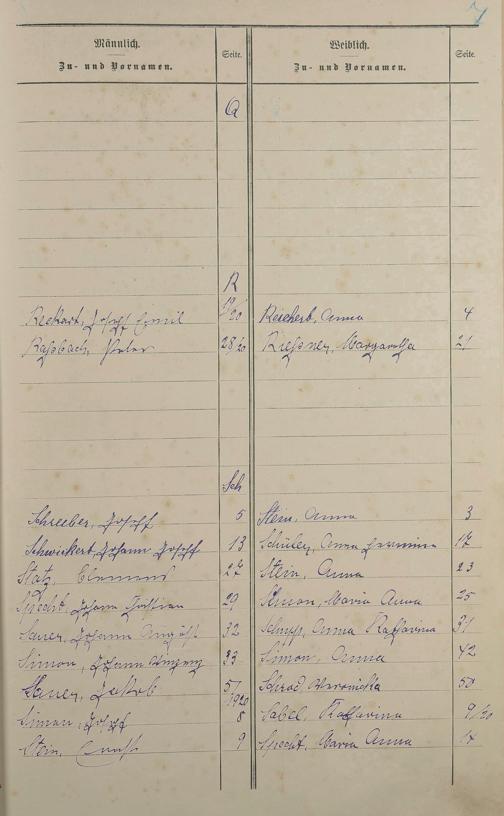 7
Männlich. Seite. Weiblich. Seite.
Zu- und Vornamen. Zu- und Vornamen.
Q
R
Reckart, Josef Emil 19/20 Reichert, Anna 4
Raßbach, Peter 28/20 Rießner, Margaretha 21
Sch
Schreeber, Joseff 5 Stein, Anna 3
Schwickert, Johann Joseff 13 Schüler, Anna Hermina 17
Statz, Clemens 27 Stein, Anna 23
Specht, Johann Christian 29 Simon, Maria Anna 25
Sauer, Johann August 32 Schupp, Anna Katharina 31
Simon, Johann 33 Simon, Anna 42
Sauer, Jakob 57 Schrod, Veronicka 50
Simon, Josef 1920 8 Sabel, Katharina 9/20
Stein, Ernst 9 Specht, Maria Anna 14